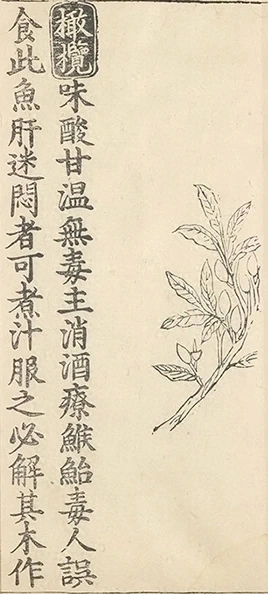 橄欖味酸甘温無毒主消酒療鯸鮐毒人誤
食此魚肝迷悶者可煮汁服之必解其木作